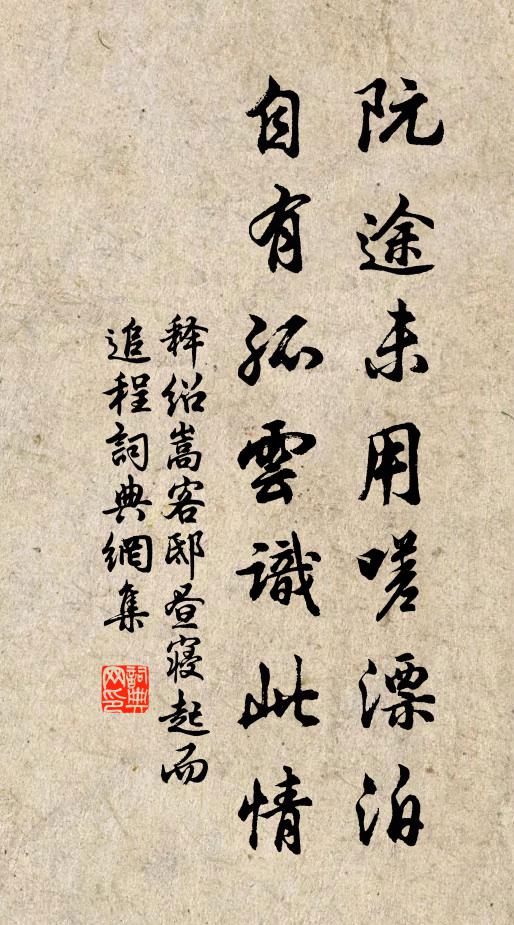 阮途未用嗟漂泊
自有孤雲識此情
释绍嵩客邸昼寝起而
追程詞典網集
詞典
网印